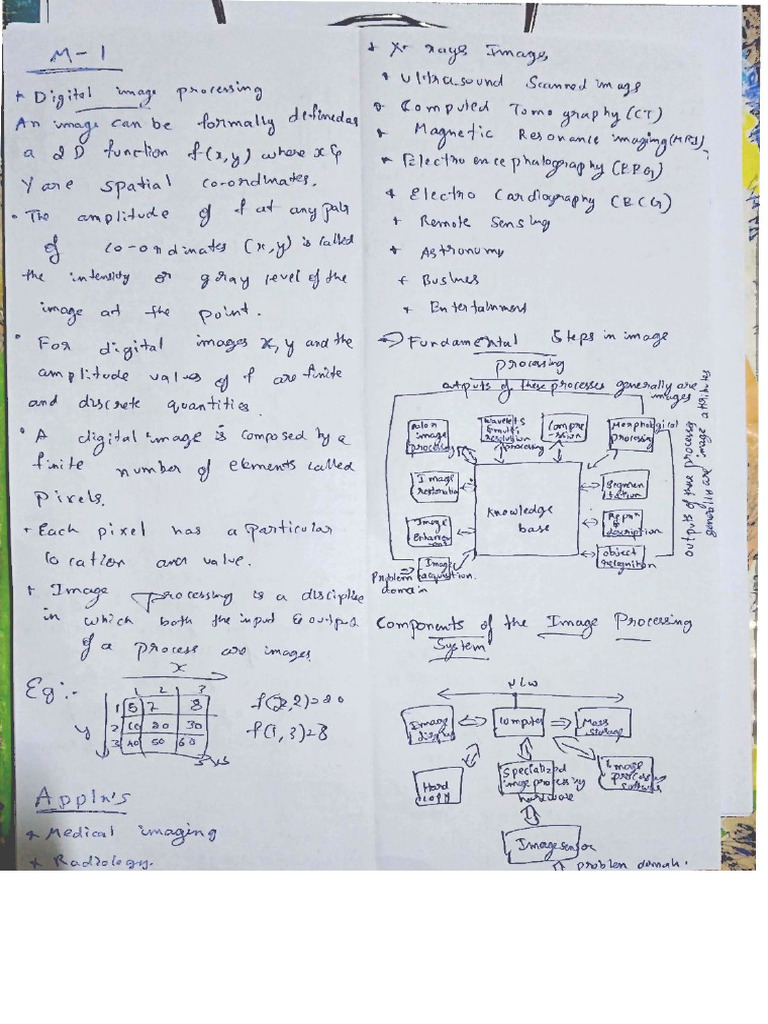 M-1
* Digital image processing
An image can be formally defined as
a 2D function f(x,y) where x &
y are spatial co-ordinates.
• The amplitude of f at any pair
of co-ordinates (x,y) is called
the intensity or gray level of the
image at the point.
• For digital images x, y and the
amplitude values of f are finite
and discrete quantities.
• A digital image is composed by a
finite number of elements called
pixels.
* Each pixel has a particular
location and value.
* Image processing is a discipline
in which both the input & output
of a process are images.
Eg:-
x
1 2 3
y
1 5 7 8
2 10 20 30
3 40 50 60
f(2,2)=20
f(1,3)=8
Appln's
* Medical imaging
* Radiology.
* X-rays Images
* Ultrasound Scanned image
* Computed Tomography (CT)
* Magnetic Resonance imaging (MRI)
* Electro encephalography (EEG)
* Electro Cardiography (ECG)
* Remote Sensing
* Astronomy
* Business
* Entertainment
→ Fundamental Steps in image
processing
outputs of these processes generally are
images
Color
image
processing
Wavelets
& multi
resolution
processing
Compre
-ssion
Morphological
processing
Image
restoration
Knowledge
base
Segmen
tation
Image
Enhance
description
object
recognition
Image
acquisition.
Problem
domain
outputs of these processes
generally are image attributes
Components of the Image Processing
System
N/W
Image
display
Computer
Mass
storage
Hard
copy
Specialized
image processing
hardware
Image
process
software
Image sensor
problem domain.